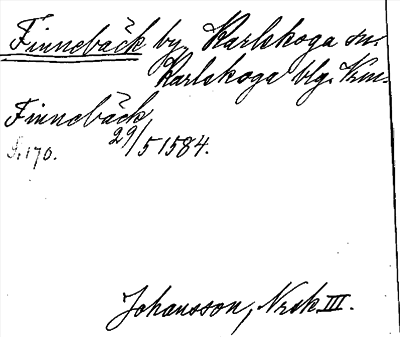 Finnebäck by, Karlskoga sn.
Karlskoga blg. Vrm.
Finnebäck,
29/5 1584.
S. 170.
Johansson, Nrck III.